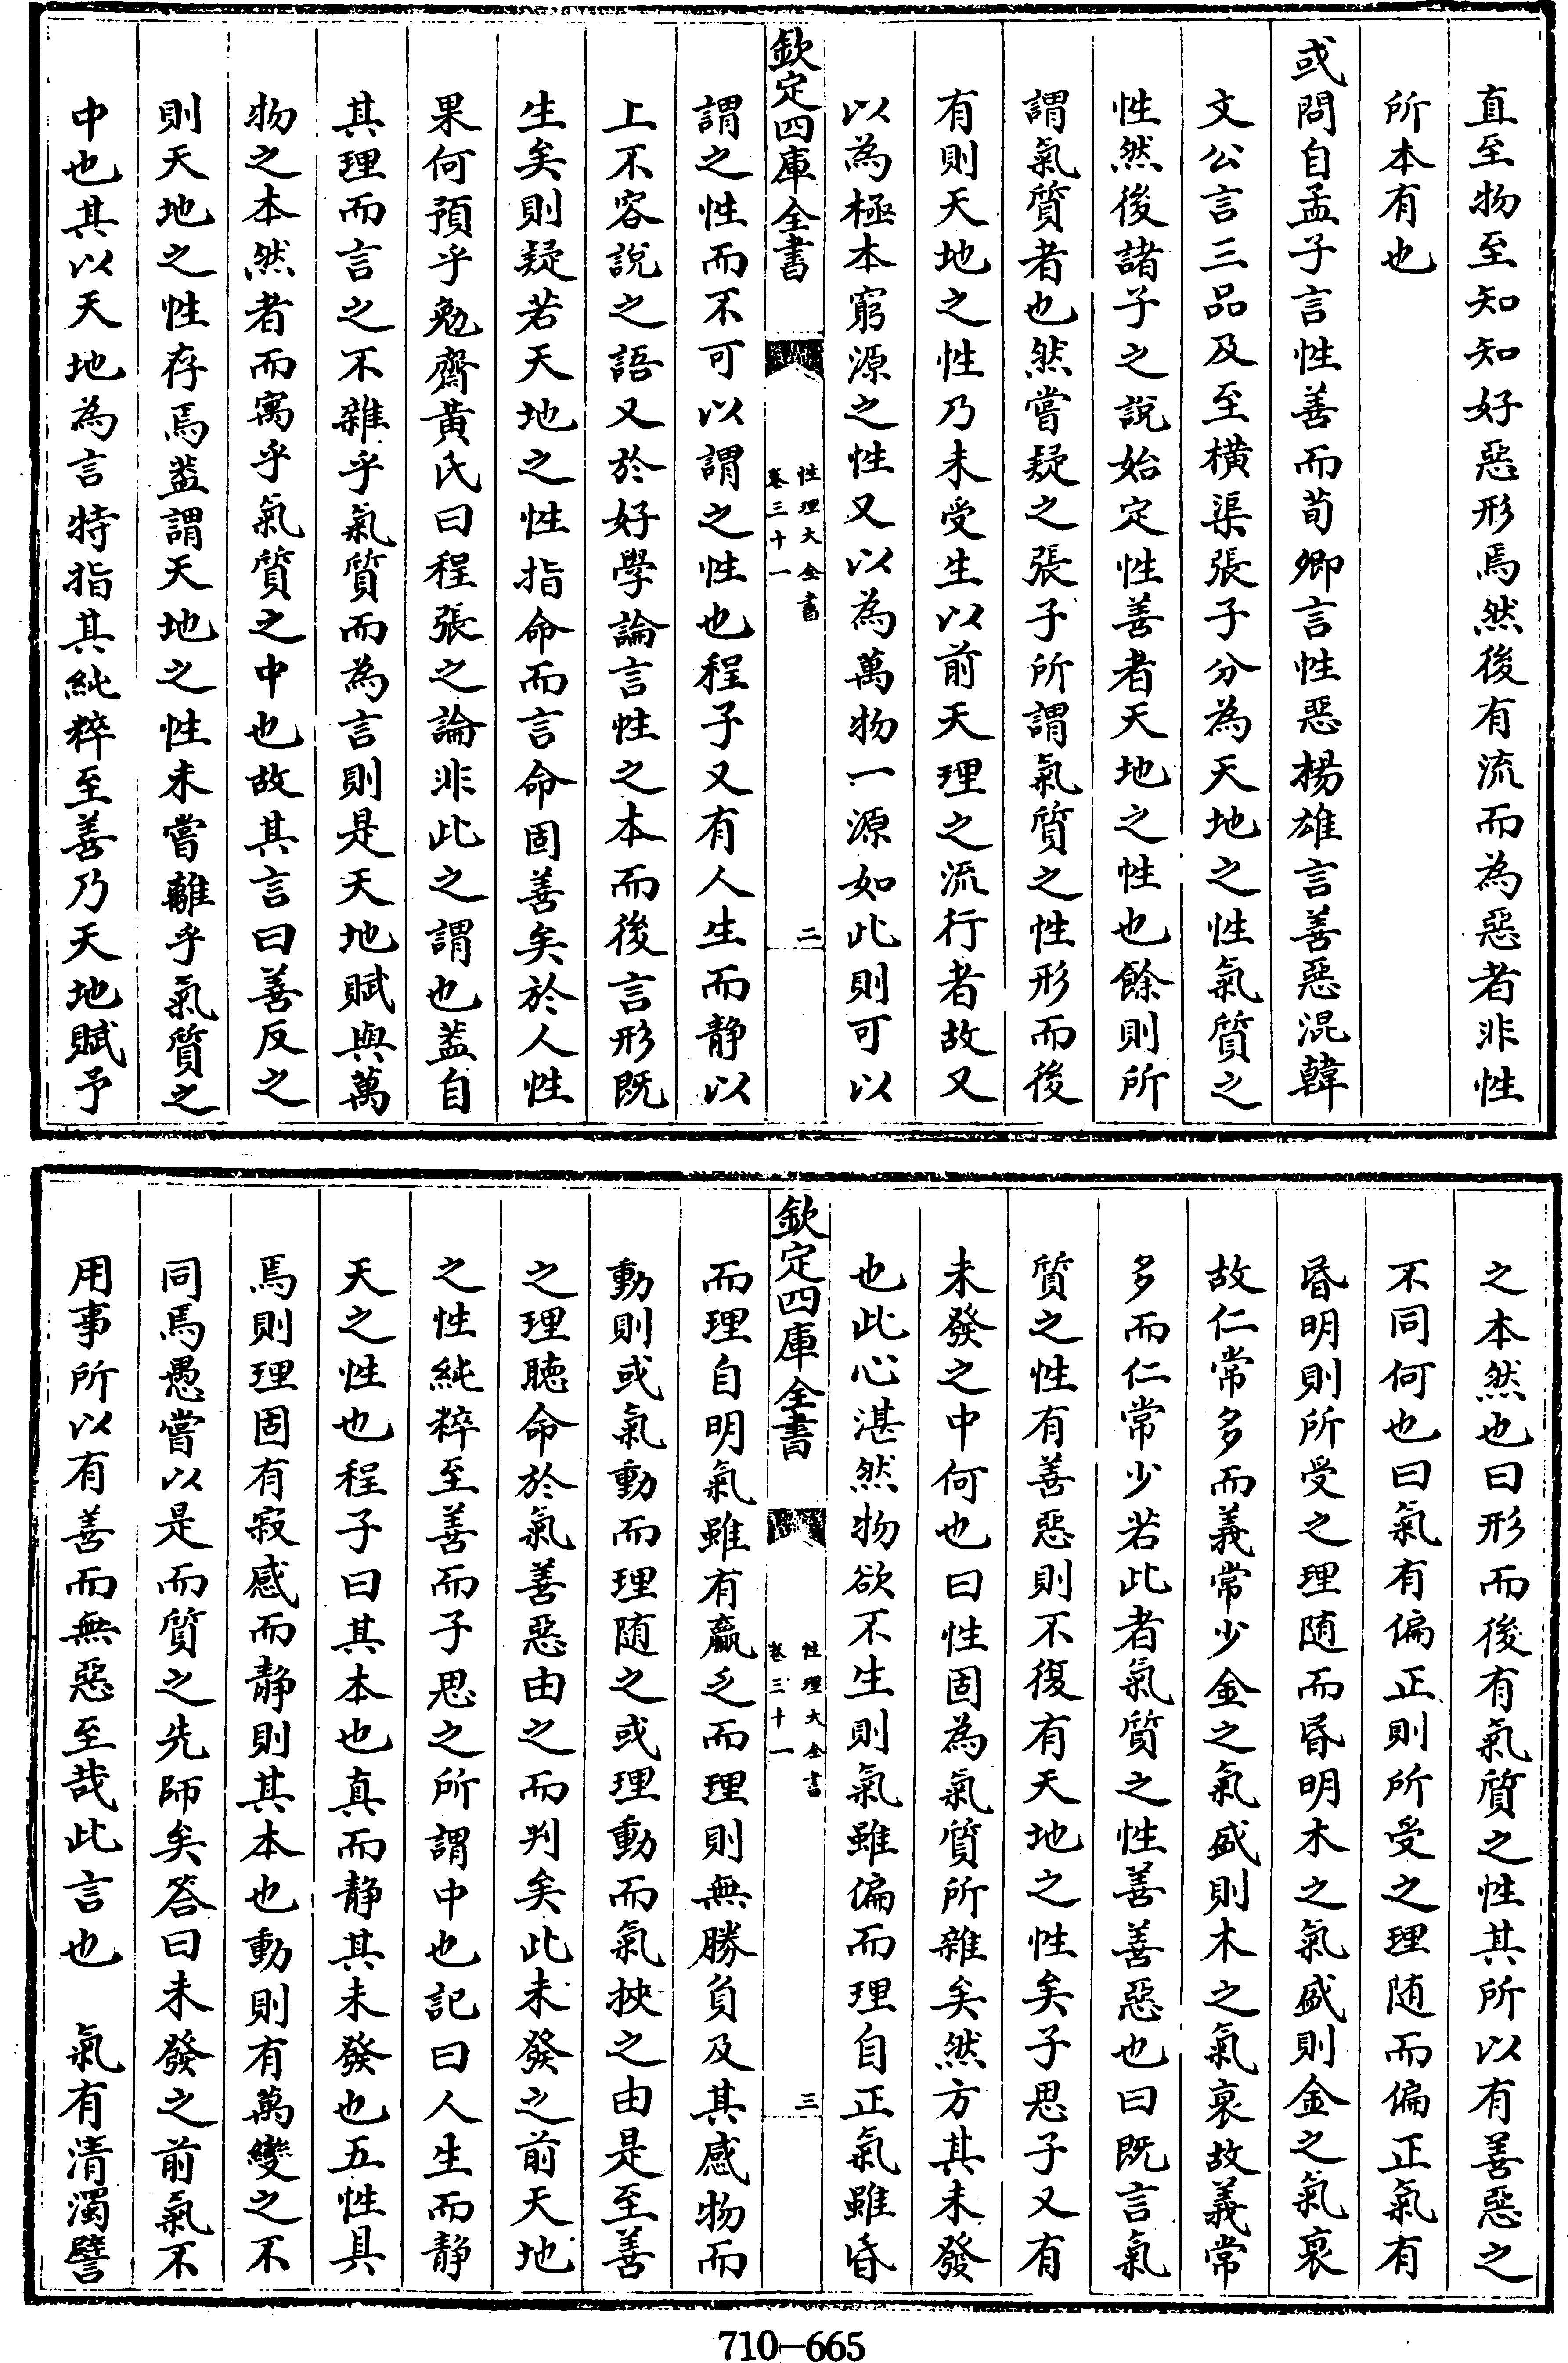 直至物至知知好惡形焉然後有流而為惡者非性
所本有也
或問自孟子言性善而荀卿言性惡楊雄言善惡混韓
文公言三品及至橫渠張子分為天地之性氣質之
性然後諸子之說始定性善者天地之性也餘則所
謂氣質者也然嘗疑之張子所謂氣質之性形而後
有則天地之性乃未受生以前天理之流行者故又
以為極本窮源之性又以為萬物一源如此則可以
欽定四庫全書
性理大全書
卷三十一
二
謂之性而不可以謂之性也程子又有人生而静以
上不容說之語又於好學論言性之本而後言形既
生矣則疑若天地之性指命而言命固善矣於人性
果何預乎勉齋黃氏曰程張之論非此之謂也盖自
其理而言之不雜乎氣質而為言則是天地賦與萬
物之本然者而寓乎氣質之中也故其言曰善反之
則天地之性存焉盖謂天地之性未嘗離乎氣質之
中也其以天地為言特指其純粹至善乃天地賦予
之本然也曰形而後有氣質之性其所以有善惡之
不同何也曰氣有偏正則所受之理随而偏正氣有
昏明則所受之理随而昏明木之氣盛則金之氣衰
故仁常多而義常少金之氣盛則木之氣衰故義常
多而仁常少若此者氣質之性善善惡也曰既言氣
質之性有善惡則不復有天地之性矣子思子又有
未發之中何也曰性固為氣質所雜矣然方其未發
也此心湛然物欲不生則氣雖偏而理自正氣雖昏
欽定四庫全書
性理大全書
卷三十一
三
而理自明氣雖有贏乏而理則無勝負及其感物而
動則或氣動而理随之或理動而氣挾之由是至善
之理聽命於氣善惡由之而判矣此未發之前天地
之性純粹至善而子思之所謂中也記曰人生而静
天之性也程子曰其本也真而静其未發也五性具
焉則理固有寂感而静則其本也動則有萬變之不
同焉愚嘗以是而質之先師矣答曰未發之前氣不
用事所以有善而無惡至哉此言也　氣有清濁譬
710-665